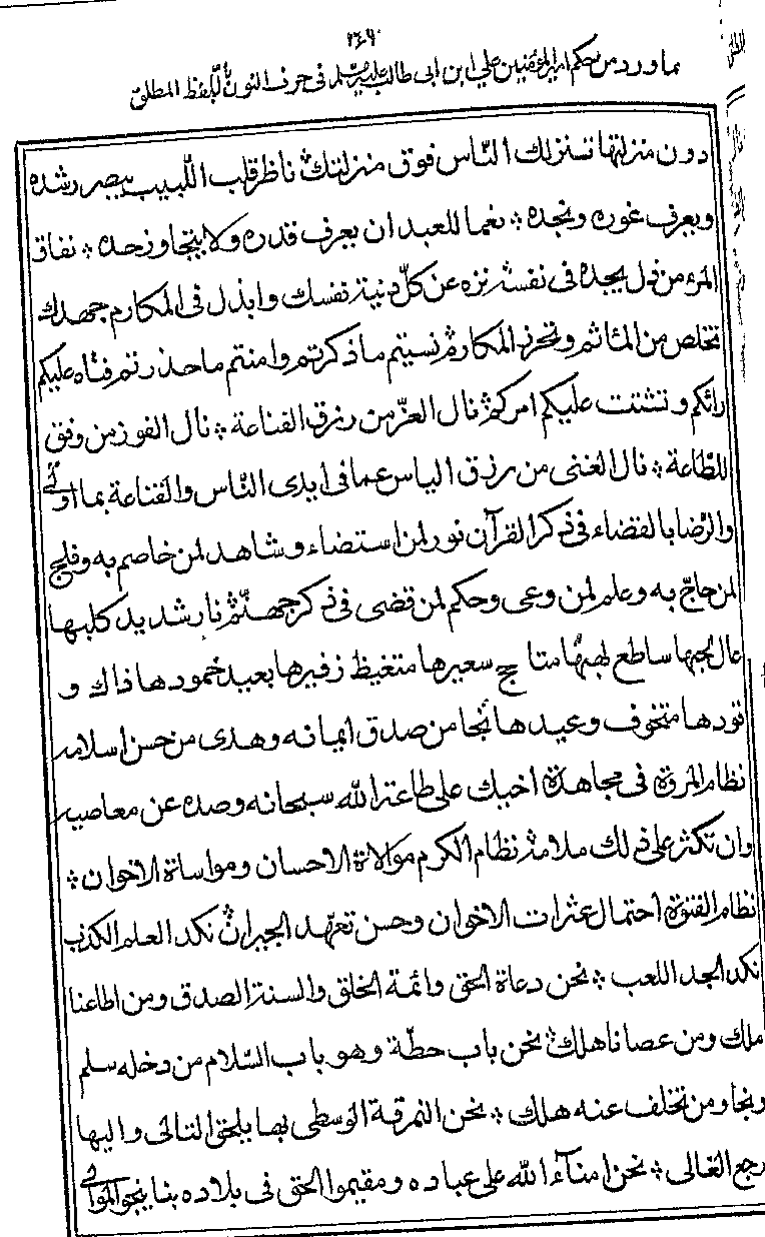 ٢٤٩
مما ورد من حكم امير المؤمنين علي ابن ابى طالب عليه السلام فى حرف النون باللفظ المطلق
دون منزلتها تنزلك النّاس فوق منزلتك ؞ ناظر قلب اللّبيب يبصر رشده
ويعرف غوره ونجده ؞ نعما للعبد ان يعرف قدره ولا يتجاوز حده ؞ نفاق
المرء من ذل يجده فى نفسه ؞ نزه عن كلّ دنية نفسك وابذل فى المكارم جهدك
تخلص من المئاثم وتحرز المكارم ؞ نسيتم ما ذكرتم وامنتم ما حذرتم فتاه عليكم
رائكم وتشتت عليكم امركم ؞ نال العزّ من رزق القناعة ؞ نال الفوز من وفق
للطّاعة ؞ نال الغنى من رزق الياس عما فى ايدى النّاس والقناعة بما اوتى
والرّضا بالقضاء فى ذكر القرآن نور لمن استضاء وشاهد لمن خاصم به وفلج
لمن حاجّ به وعلم لمن وعى وحكم لمن قضى فى ذكر جهنّم ؞ نار شديد كلبها
عال لجبها ساطع لهبها متاجج سعيرها متغيظ زفيرها بعيد خمودها ذاك و
قودها متخوف وعيدها ؞ نجا من صدق ايمانه وهدى من حسن اسلامه
نظام المروة فى مجاهدة اخيك على طاعة الله سبحانه وصده عن معاصيه
وان تكثر على ذلك ملامة ؞ نظام الكرم موالاة الاحسان ومواساة الاخوان ؞
نظام الفتوة احتمال عثرات الاخوان وحسن تعهّد الجيران ؞ نكد العلم الكذب
نكد الجد اللعب ؞ نحن دعاة الحق وائمة الخلق والسنة الصدق ومن اطاعنا
ملك ومن عصانا هلك ؞ نحن باب حطّة وهو باب السّلام من دخله سلم
ونجا ومن تخلف عنه هلك ؞ نحن النمرقة الوسطى بها يلحق التالى واليها
رجع الغالى ؞ نحن امناء الله على عباده ومقيموا الحق فى بلاده بنا ينجو الموالى